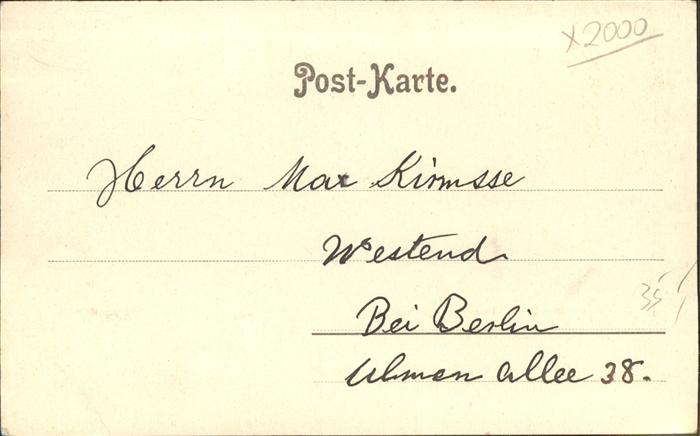 x2000
Post-Karte.
Herrn Max Kirmsse
Westend
Bei Berlin
35
Ulmen Allee 38.